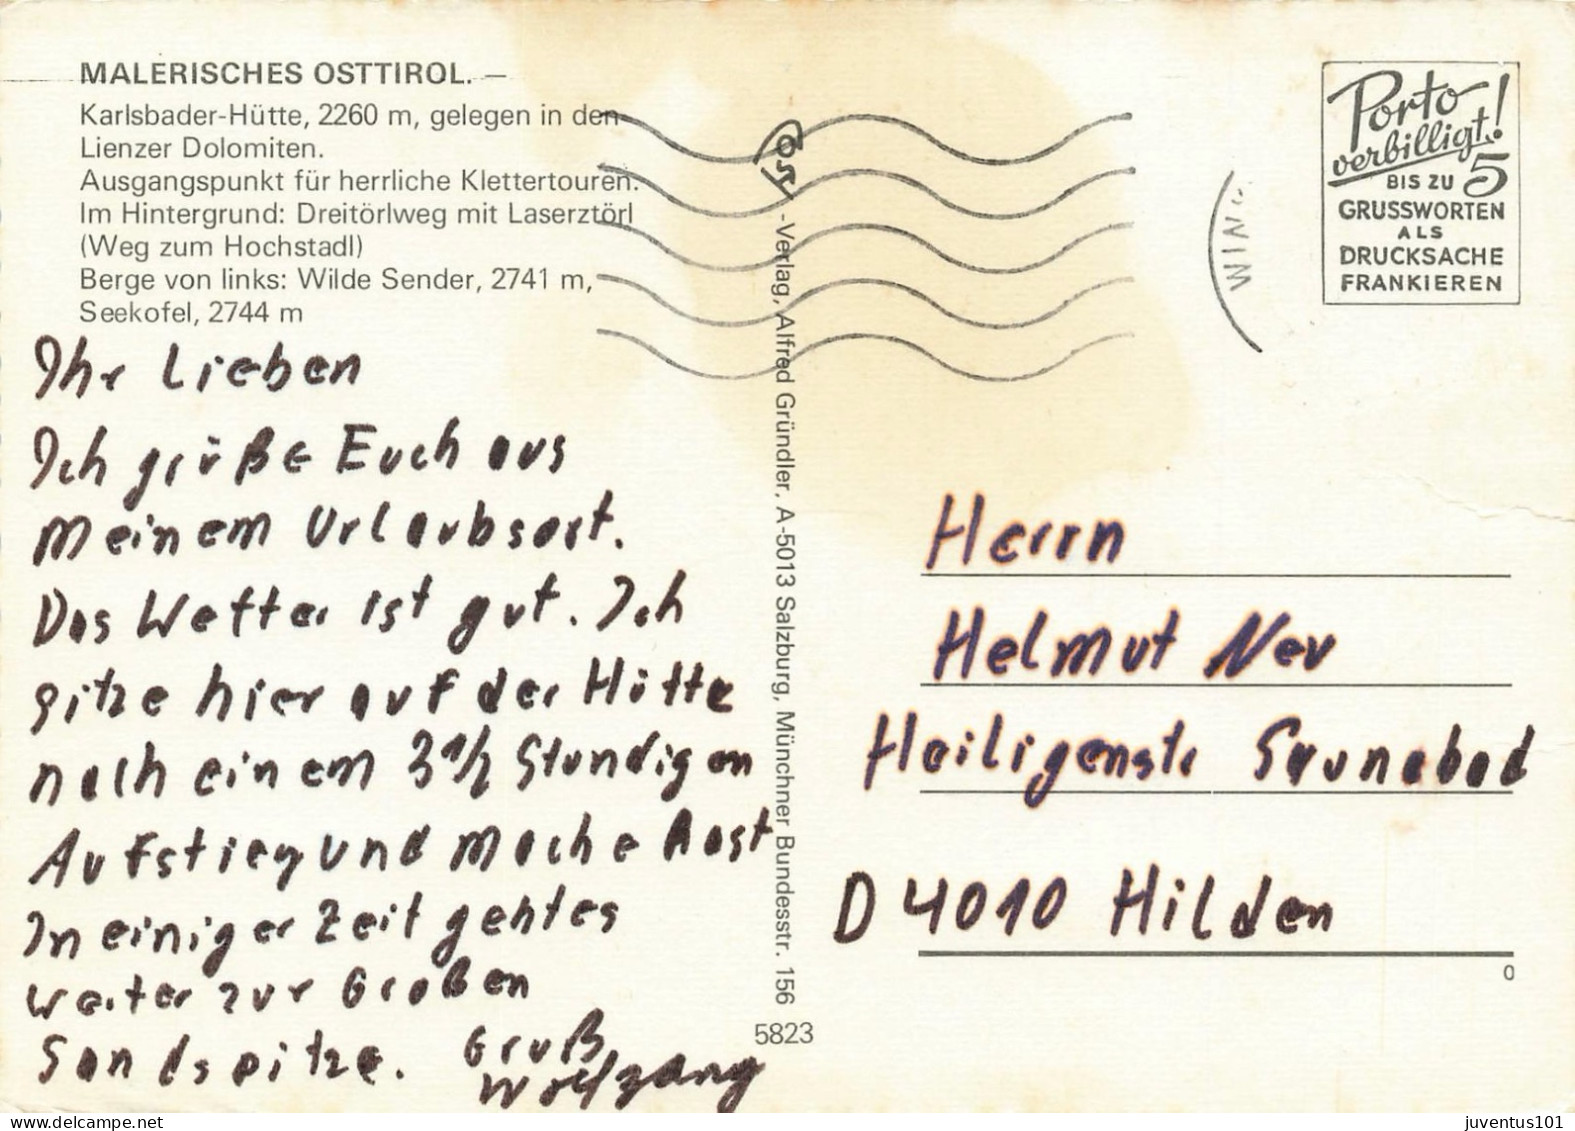 MALERISCHES OSTTIROL. —
Karlsbader-Hütte, 2260 m, gelegen in den
Lienzer Dolomiten.
Ausgangspunkt für herrliche Klettertouren.
Im Hintergrund: Dreitörlweg mit Laserztörl
(Weg zum Hochstadl)
Berge von links: Wilde Sender, 2741 m,
Seekofel, 2744 m
Ihr Lieben
Ich grüße Euch aus
meinem Urlaubsort.
Das Wetter ist gut. Ich
sitze hier auf der Hütte
nach einem 3 1/2 Stundigen
Aufstieg und mache Rast
In einiger Zeit geht es
weiter zur Großen
Sandspitze. Gruß
Wolfgang
-Verlag, Alfred Gründler, A-5013 Salzburg, Münchner Bundesstr. 156
5823
Porto
verbilligt!
BIS ZU 5
GRUSSWORTEN
ALS
DRUCKSACHE
FRANKIEREN
Herrn
Helmut Neu
Heiligenstr Saunabad
D 4010 Hilden
juventus101